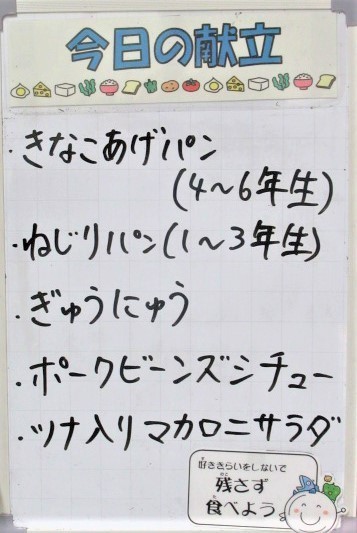 今日の献立
・きなこあげパン
(4〜6年生)
・ねじりパン(1〜3年生)
・ぎゅうにゅう
・ポークビーンズシチュー
・ツナ入りマカロニサラダ
好ききらいをしないで
残さず
食べよう。